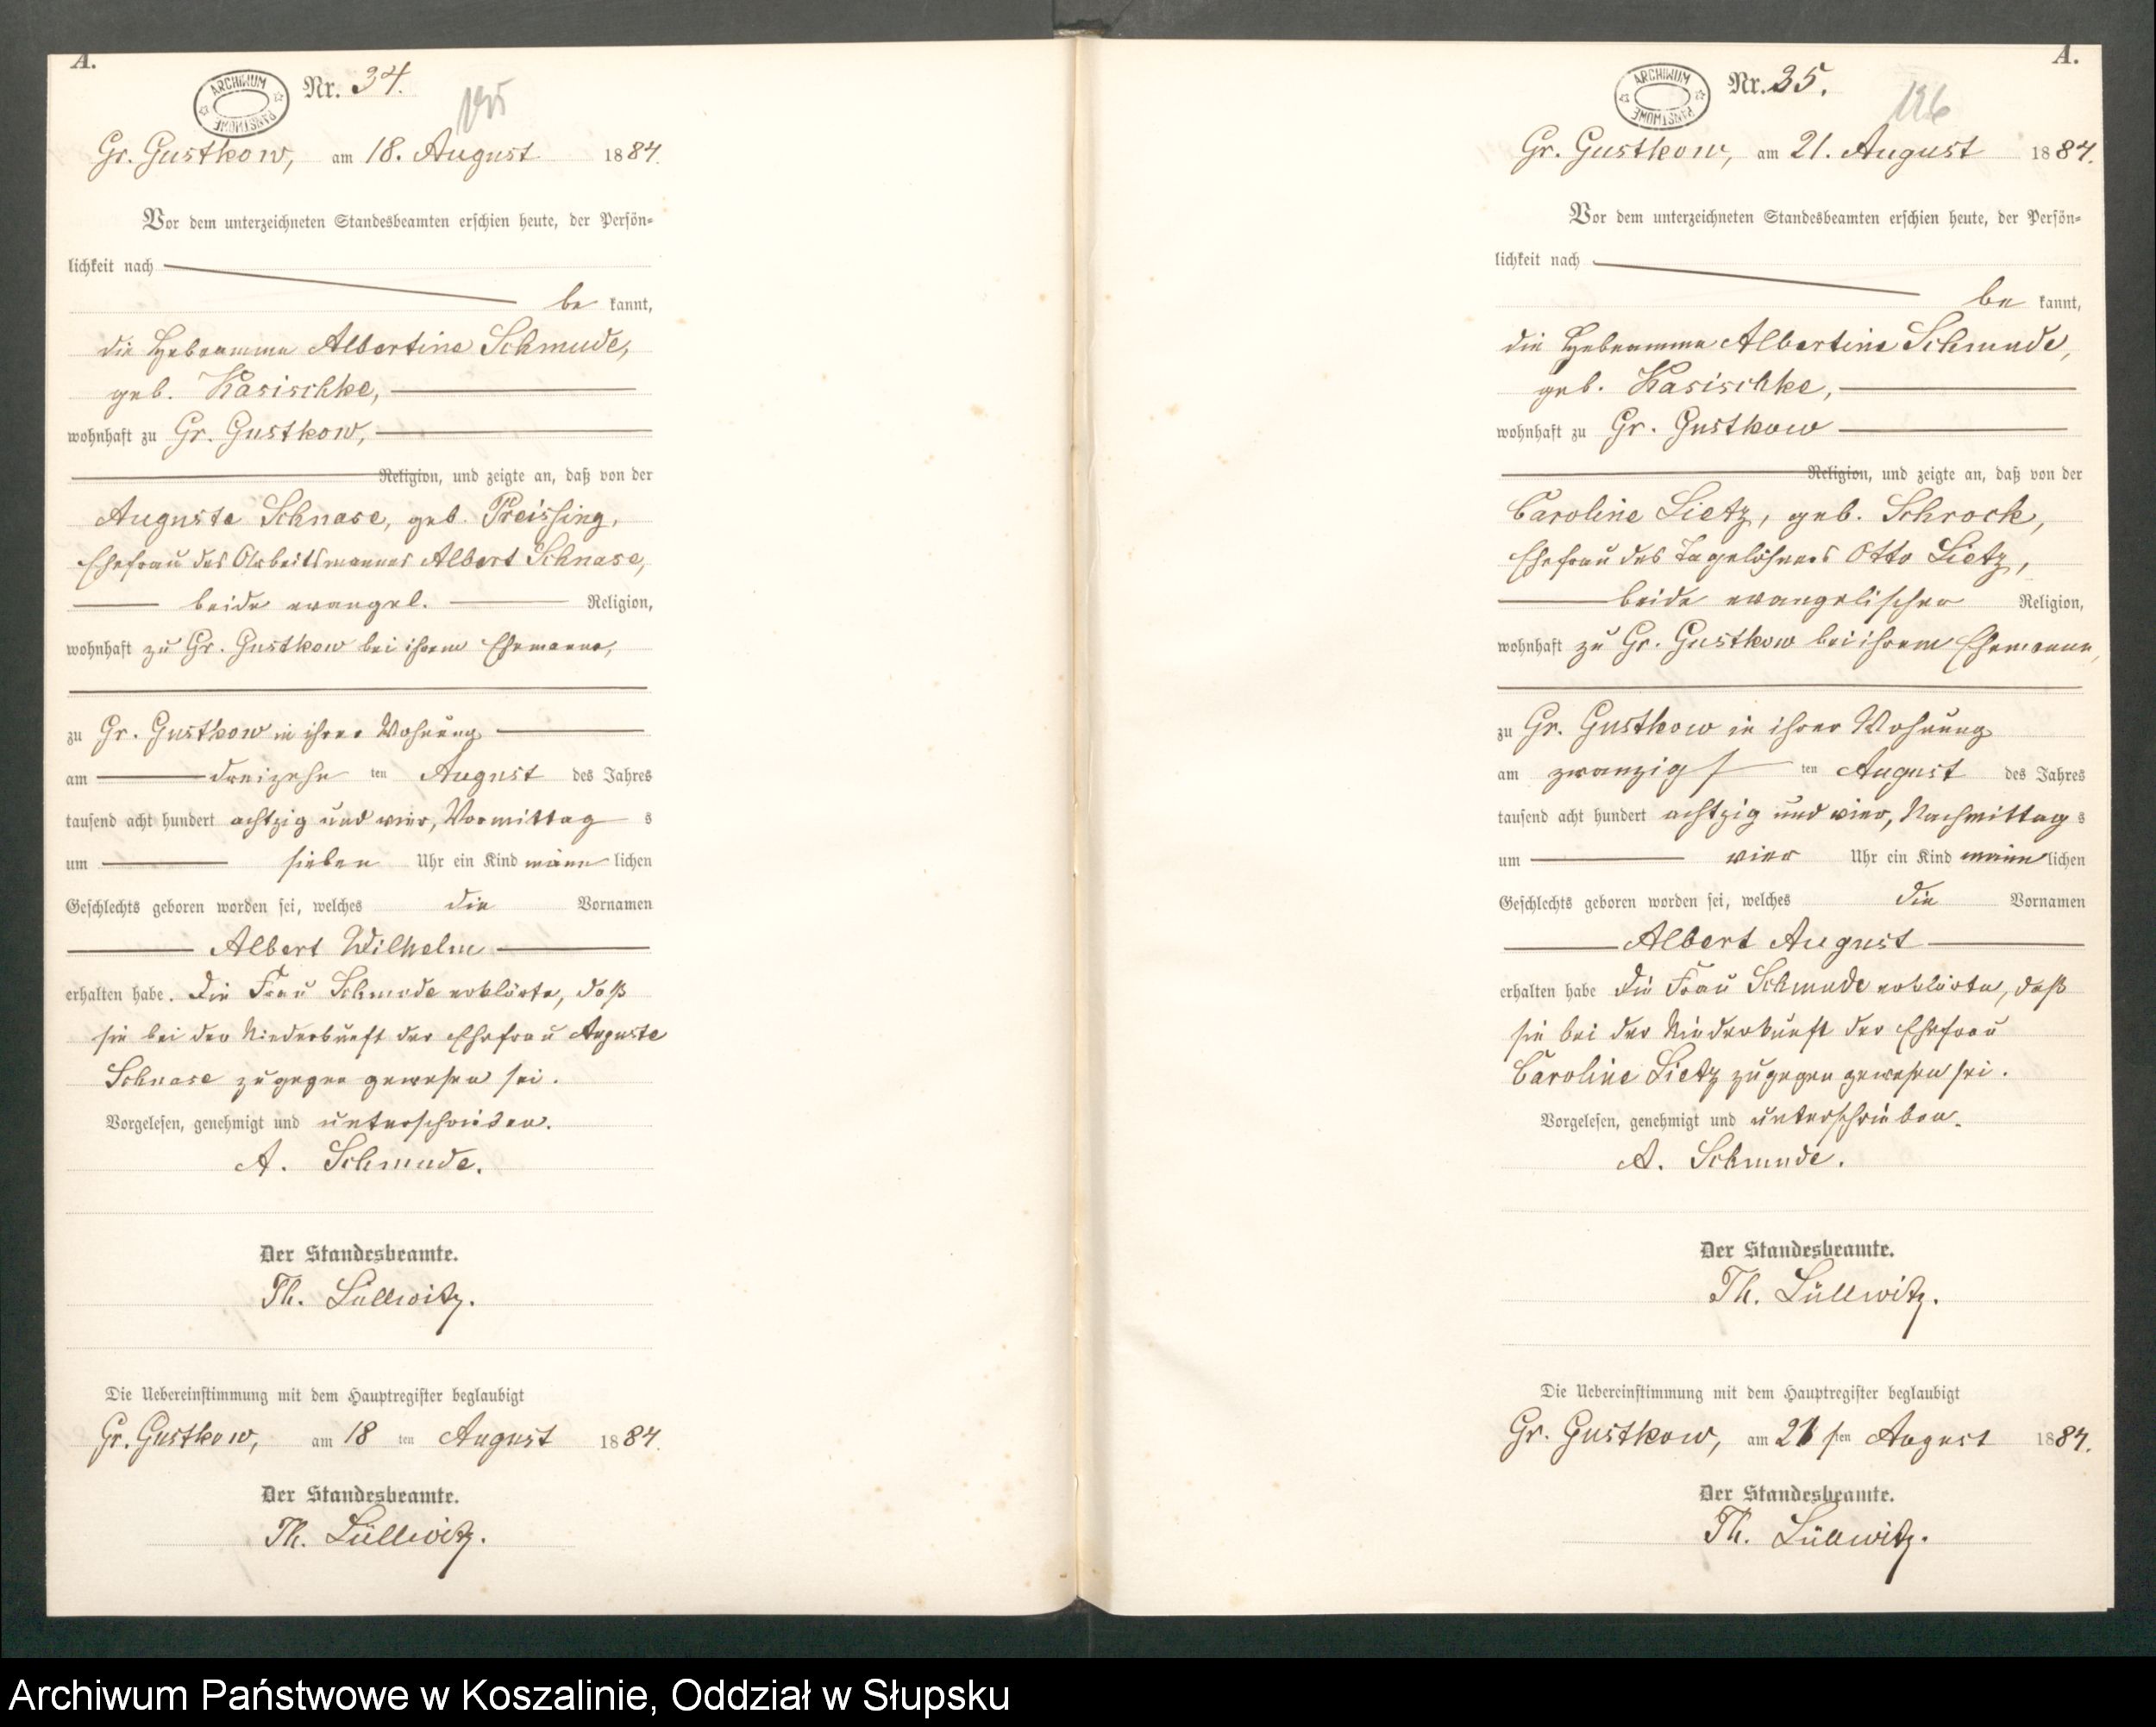 A.
ARCHIWUM PAŃSTWOWE
Nr. 34.
195
Gr. Gustkow, am 18. August 1884.
Vor dem unterzeichneten Standesbeamten erschien heute, der Persön=
lichkeit nach
be kannt,
die Hebeamme Albertine Schmude,
geb. Kasischke,
wohnhaft zu Gr. Gustkow,
Religion, und zeigte an, daß von der
Auguste Schnase, geb. Preissing,
Ehefrau des Arbeitsmannes Albert Schnase,
beide evangel. Religion,
wohnhaft zu Gr. Gustkow bei ihrem Ehemanne,
zu Gr. Gustkow in ihrer Wohnung
am dreizehn ten August des Jahres
tausend acht hundert achtzig und vier, Vormittag s
um sieben Uhr ein Kind männ lichen
Geschlechts geboren worden sei, welches die Vornamen
Albert Wilhelm
erhalten habe. Die Frau Schmude erklärte, daß
sie bei der Niederkunft der Ehefrau Auguste
Schnase zugegen gewesen sei.
Vorgelesen, genehmigt und unterschrieben.
A. Schmude.
Der Standesbeamte.
Th. Lüllwitz.
Die Uebereinstimmung mit dem Hauptregister beglaubigt
Gr. Gustkow, am 18 ten August 1884.
Der Standesbeamte.
Th. Lüllwitz.
A.
ARCHIWUM PAŃSTWOWE
Nr. 35.
196
Gr. Gustkow, am 21. August 1884.
Vor dem unterzeichneten Standesbeamten erschien heute, der Persön=
lichkeit nach
be kannt,
die Hebeamme Albertine Schmude,
geb. Kasischke,
wohnhaft zu Gr. Gustkow
Religion, und zeigte an, daß von der
Caroline Lietz, geb. Schrock,
Ehefrau des Tagelöhners Otto Lietz,
beide evangelischer Religion,
wohnhaft zu Gr. Gustkow bei ihrem Ehemann,
zu Gr. Gustkow in ihrer Wohnung
am zwanzigs ten August des Jahres
tausend acht hundert achtzig und vier, Nachmittag s
um vier Uhr ein Kind männ lichen
Geschlechts geboren worden sei, welches die Vornamen
Albert August
erhalten habe Die Frau Schmude erklärte, daß
sie bei der Niederkunft der Ehefrau
Caroline Lietz zugegen gewesen sei.
Vorgelesen, genehmigt und unterschrieben.
A. Schmude.
Der Standesbeamte.
Th. Lüllwitz.
Die Uebereinstimmung mit dem Hauptregister beglaubigt
Gr. Gustkow, am 21 sten August 1884.
Der Standesbeamte.
Th. Lüllwitz.
Archiwum Państwowe w Koszalinie, Oddział w Słupsku